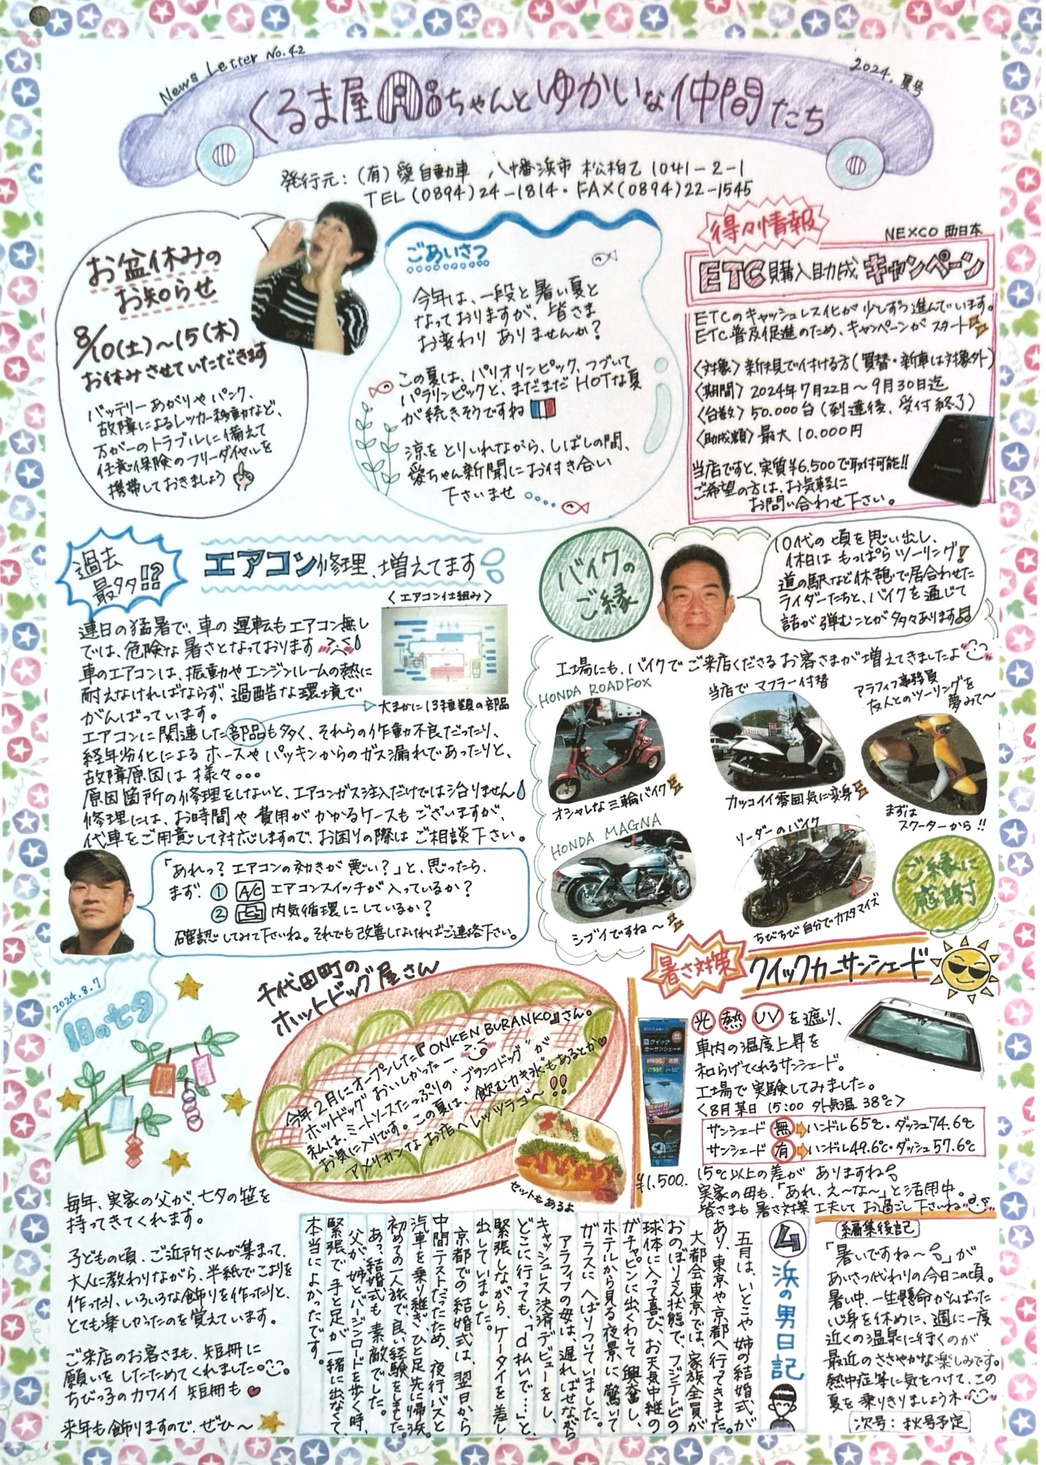 News Letter No.42
2024. 夏号
くるま屋 愛ちゃんとゆかいな仲間たち
発行元：(有)愛自動車 八幡浜市 松柏乙 1041-2-1
TEL (0894)24-1814・FAX(0894)22-1545
お盆休みの
お知らせ
8/10(土)〜15(木)
お休みさせていただきます
バッテリーあがりやパンク、
故障によるレッカー移動など、
万が一のトラブルに備えて
任意保険のフリーダイヤルを
携帯しておきましょう
ごあいさつ
今年は、一段と暑い夏と
なっておりますが、皆さま
お変わりありませんか？
この夏は、パリオリンピック、つづいて
パラリンピックと、まだまだHOTな夏
が続きそうですね
涼をとりいれながら、しばしの間、
愛ちゃん新聞にお付き合い
下さいませ
得々情報
NEXCO 西日本
ETC購入助成キャンペーン
ETCのキャッシュレス化が少しずつ進んでいます。
ETC普及促進のため、キャンペーンがスタート
〈対象〉新規で付ける方(買替・新車は対象外)
〈期間〉2024年7月22日〜9月30日迄
〈台数〉50.000台(到達後、受付終了)
〈助成額〉最大10.000円
当店ですと、実質¥6,500で取付可能!!
ご希望の方は、お気軽に
お問い合わせ下さい。
過去
最多!?
エアコン修理、増えてます
〈エアコン仕組み〉
連日の猛暑で、車の運転もエアコン無し
では、危険な暑さとなっております
車のエアコンは、振動やエンジンルームの熱に
耐えなければならず、過酷な環境で
がんばっています。
大まかに13種類の部品
エアコンに関連した部品も多く、それらの作動不良だったり、
経年劣化によるホースやパッキンからのガス漏れであったりと、
故障原因は様々...
原因箇所の修理をしないと、エアコンガス注入だけでは治りません
修理には、お時間や費用がかかるケースもございますが、
代車をご用意して対応しますので、お困りの際はご相談下さい。
「あれっ？エアコンの効きが悪い？」と、思ったら、
まず. ① A/C エアコンスイッチが入っているか？
② 内気循環にしているか？
確認してみて下さいね。それでも改善しなければご連絡下さい。
バイクの
ご縁
10代の頃を思い出し、
休日はもっぱらツーリング!
道の駅など休憩で居合わせた
ライダーたちと、バイクを通じて
話が弾むことが多々あります♫
工場にも、バイクでご来店くださるお客さまが増えてきましたよ
HONDA ROADFOX
オシャレな三輪バイク
当店でマフラー付替
カッコイイ雰囲気に変身
アラフィフ事務員
友人とのツーリングを
夢みて〜
まずは
スクーターから!!
HONDA MAGNA
シブイですね〜
リーダーのバイク
ちびちび自分でカスタマイズ
ご縁に
感謝
2024.8.7
旧の七夕
毎年、実家の父が、七夕の笹を
持ってきてくれます。
子どもの頃、ご近所さんが集まって、
大人に教わりながら、半紙でこよりを
作ったり、いろいろな飾りを作ったりと、
とても楽しかったのを覚えています。
ご来店のお客さまも、短冊に
願いをしたためてくれました。
ちびっ子のカワイイ短冊も♥
来年も飾りますので、ぜひ〜
千代田町の
ホットドッグ屋さん
今年2月にオープンした『ONKEN BURANKO』さん。
ホットドッグおいしかったー
私は、ミートソースたっぷりの"ブランコドッグ"が
お気に入りです。この夏は、飲むカキ氷もあるとか♥
アメリカンなお店へレッツラゴ〜!!
セットもあるよ
暑さ対策
クイックカーサンシェード
光 熱 UV を遮り、
車内の温度上昇を
和らげてくれるサンシェード。
工場で実験してみました。
〈8月某日 15:00 外気温 38℃〉
サンシェード 無 ハンドル65℃・ダッシュ74.6℃
サンシェード 有 ハンドル49.6℃・ダッシュ57.6℃
15℃以上の差がありますね
¥1,500.
実家の母も、「あれ、え〜な〜」と活用中。
皆さまも暑さ対策工夫してお過ごし下さいね
④ 浜の男日記
五月は、いとこや姉の結婚式が
あり、東京や京都へ行ってきました。
大都会東京では、家族全員が
おのぼりさん状態で、フジテレビの
球体に入って喜び、お天気中継の
ガチャピンに出くわして興奮し、
ホテルから見る夜景に驚いて
ガラスにへばりついていました。
アラフィフの母は、遅ればせながら
キャッシュレス決済デビューをし、
どこに行っても、「d払いで…」と、
緊張しながら、ケータイを差し
出していました。
京都での結婚式は、翌日から
中間テストだったため、夜行バスと
汽車を乗り継ぎひと足先に帰浜。
初めての一人旅で、良い経験をしました。
あっ、結婚式も、素敵でした。
父が、姉とバージンロードを歩く時、
緊張で、手と足が一緒に出なくて、
本当によかったです。
編集後記
「暑いですね〜」が
あいさつ代わりの今日この頃。
暑い中、一生懸命がんばった
心身を休めに、週に一度
近くの温泉に行くのが
最近のささやかな楽しみです。
熱中症等に気をつけて、この
夏を乗りきりましょうネ
次号：秋号予定